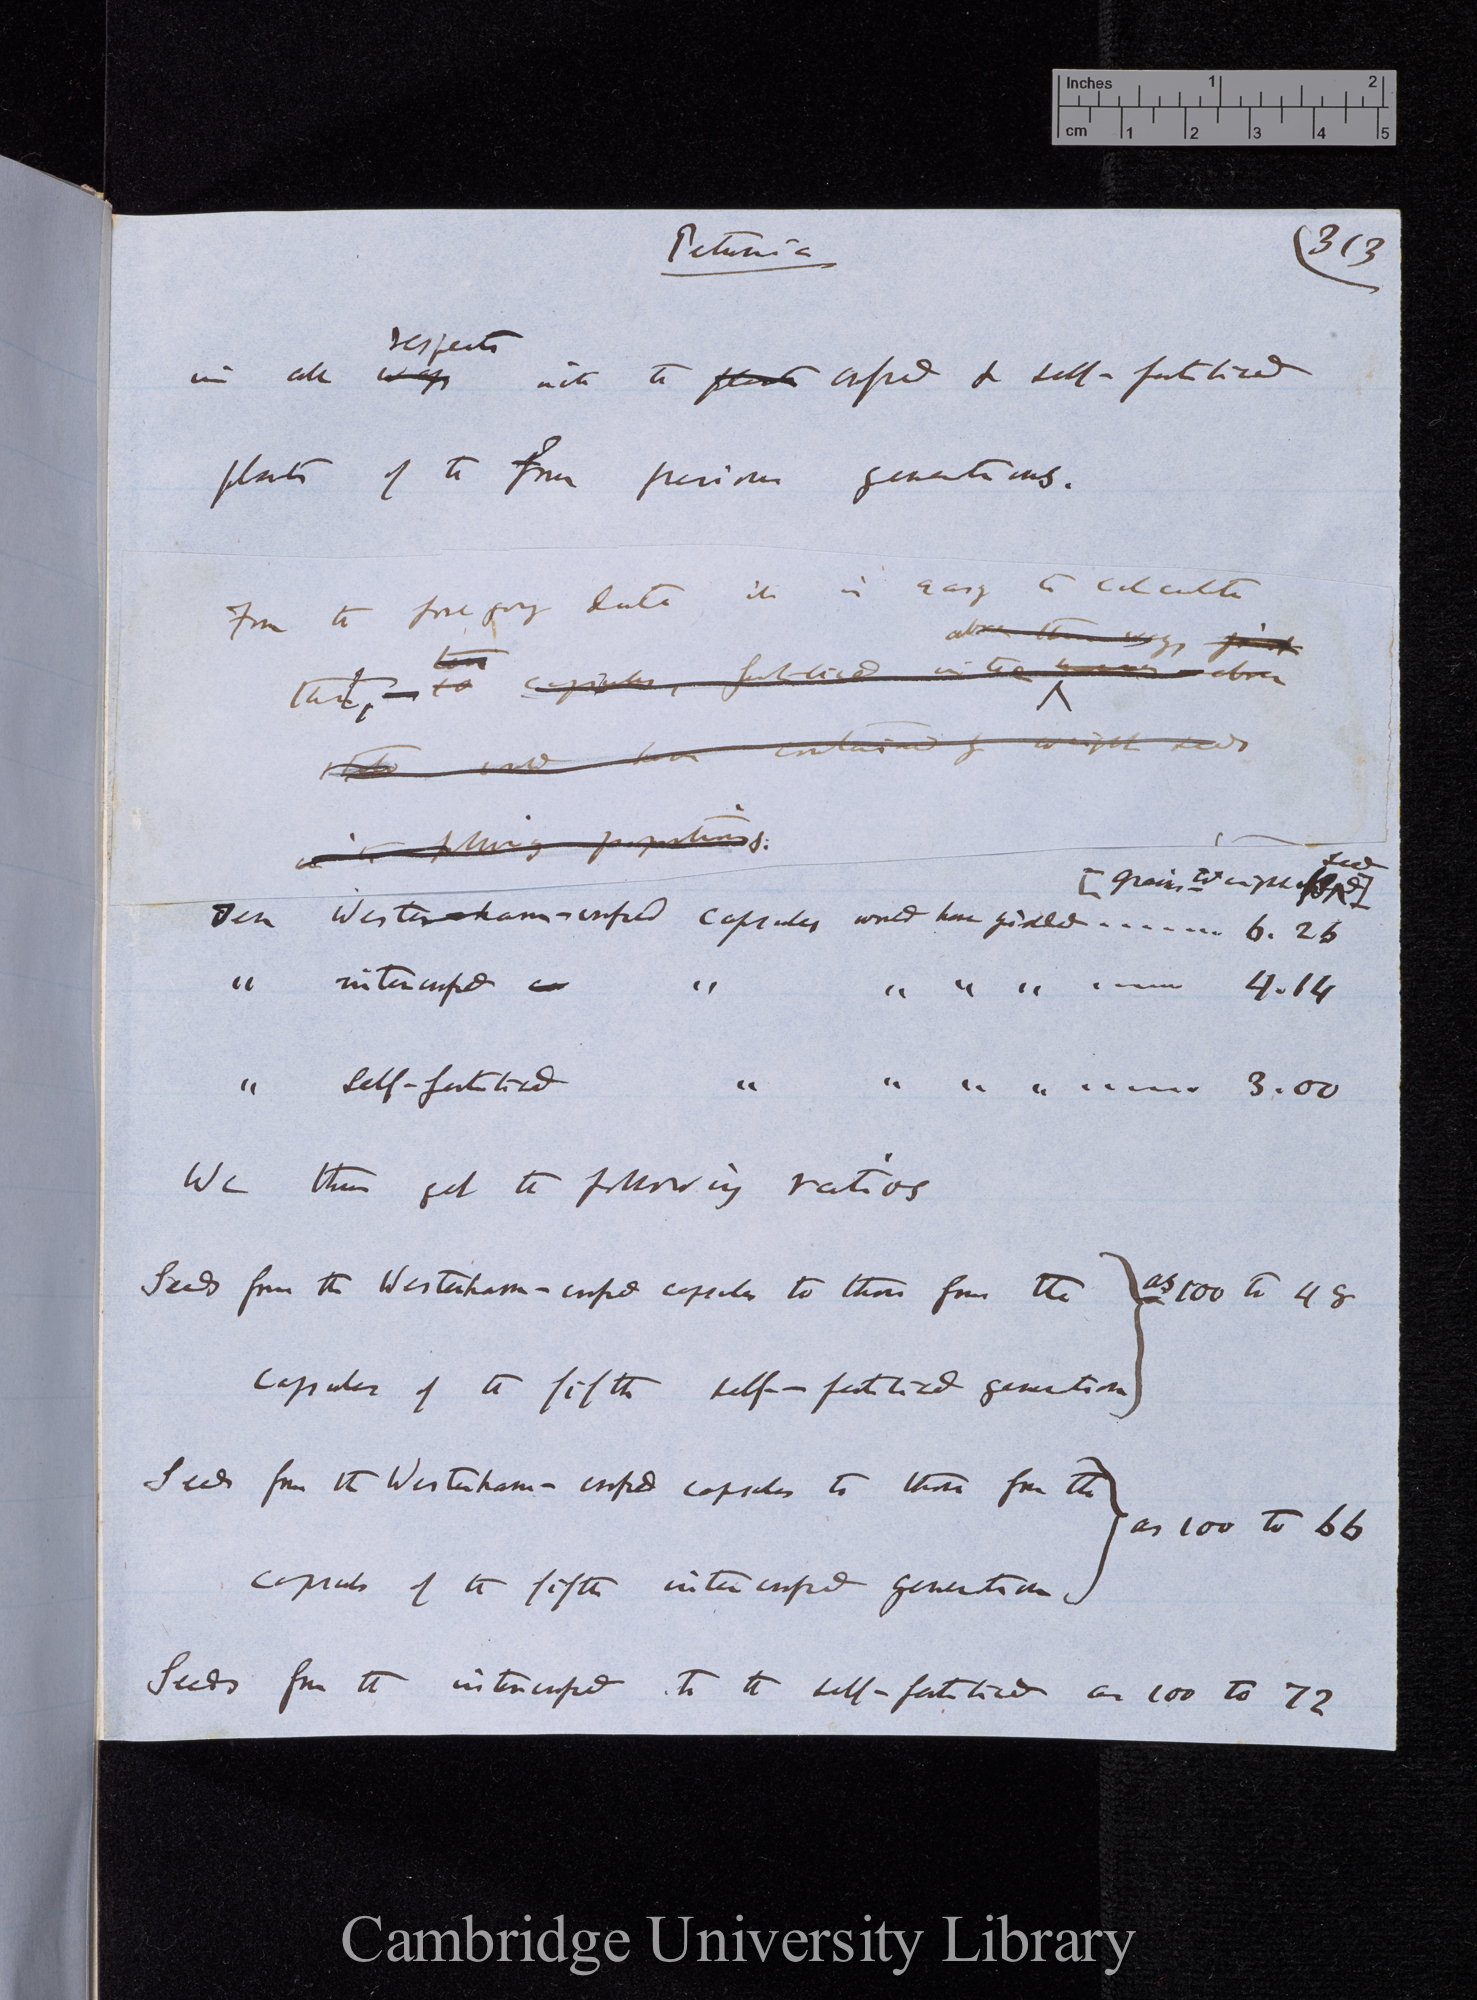 Inches 1 2
cm 1 2 3 4 5
Petunia
(313
respects
in all ways with the plants crossed & self-fertilised
plants of the four previous generations.
From the foregoing data it is easy to calculate
above three ways, just
ten
that, 10 capsules, fertilised in the manner above
stated would have contained by weight seeds
in the following proportions.
seed
[grains weight of
Ten Westerham-crossed capsules would have yielded ........ 6.26
" intercrossed " " " " ...... 4.14
" Self-fertilised " " " " ....... 3.00
We thus get the following ratios
Seeds from the Westerham-crossed capsules to those from the } as 100 to 48
capsules of the fifth self-fertilised generation
Seeds from the Westerham-crossed capsules to those from the } as 100 to 66
capsules of the fifth intercrossed generation
Seeds from the intercrossed to the self-fertilised as 100 to 72
Cambridge University Library